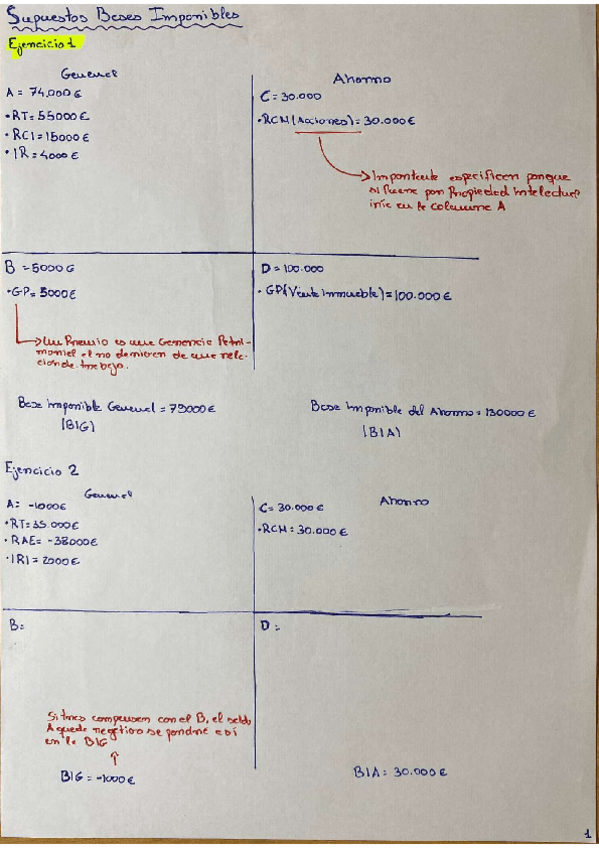 Supuestos Bases Imponibles
Ejercicio 1
General
A = 74.000€
• RT = 55000€
• RCI = 15000€
• IR = 4000€
Ahorro
C = 30.000
• RCM (Acciones) = 30.000€
Importante especificar porque
si fuera por Propiedad intelectual
iría en la columna A
B = 5000€
• GP = 5000€
Un Premio es una Ganancia Patri-
monial al no derivarse de una rela-
ción de trabajo.
D = 100.000
• GP (Venta Inmueble) = 100.000€
Base Imponible General = 79000€
(BIG)
Base Imponible del Ahorro = 130000€
(BIA)
Ejercicio 2
General
A = -1000€
• RT = 35.000€
• RAE = -38000€
• IRI = 2000€
Ahorro
C = 30.000€
• RCM = 30.000€
B =
D =
Si tras compensar con el B, el saldo
A queda negativo se pondrá así
en la BIG
BIG = -1000€
BIA = 30.000€
1